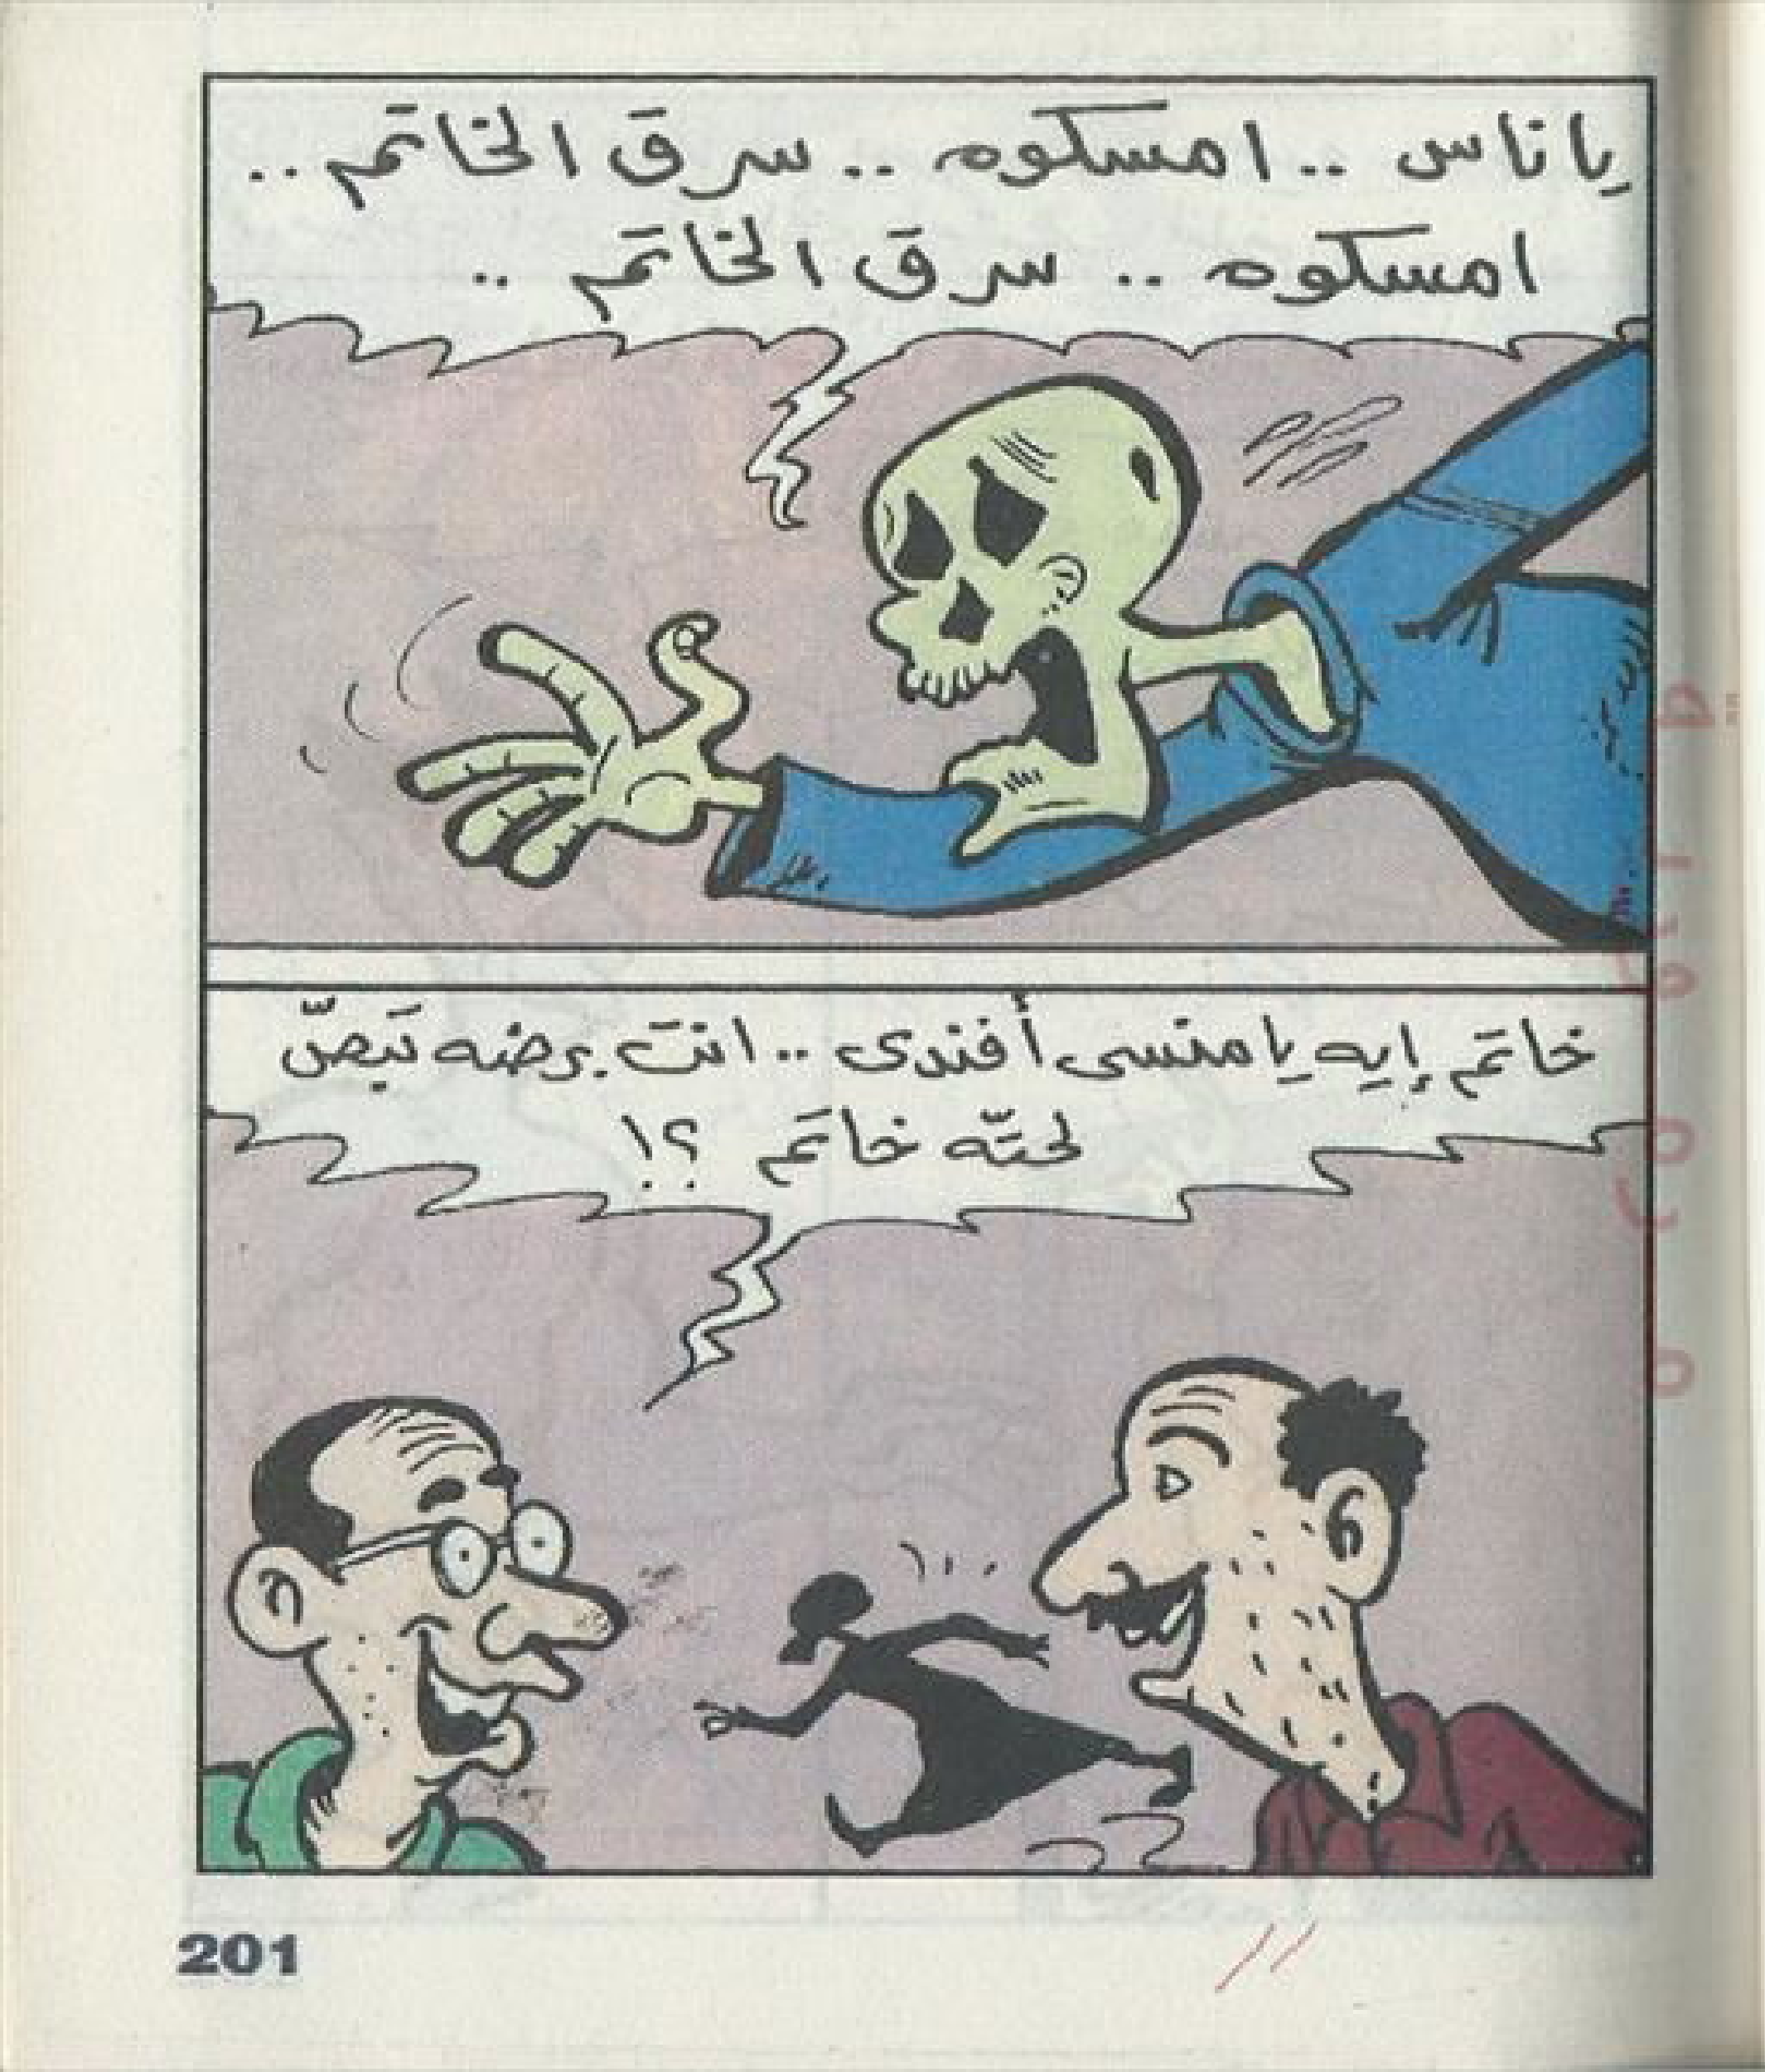 ياناس .. امسكوه .. سرق الخاتم ..
امسكوه .. سرق الخاتم ..
خاتم إيه يا منسى أفندى .. انت برضه تبصّ
لحتّه خاتم ؟!
201